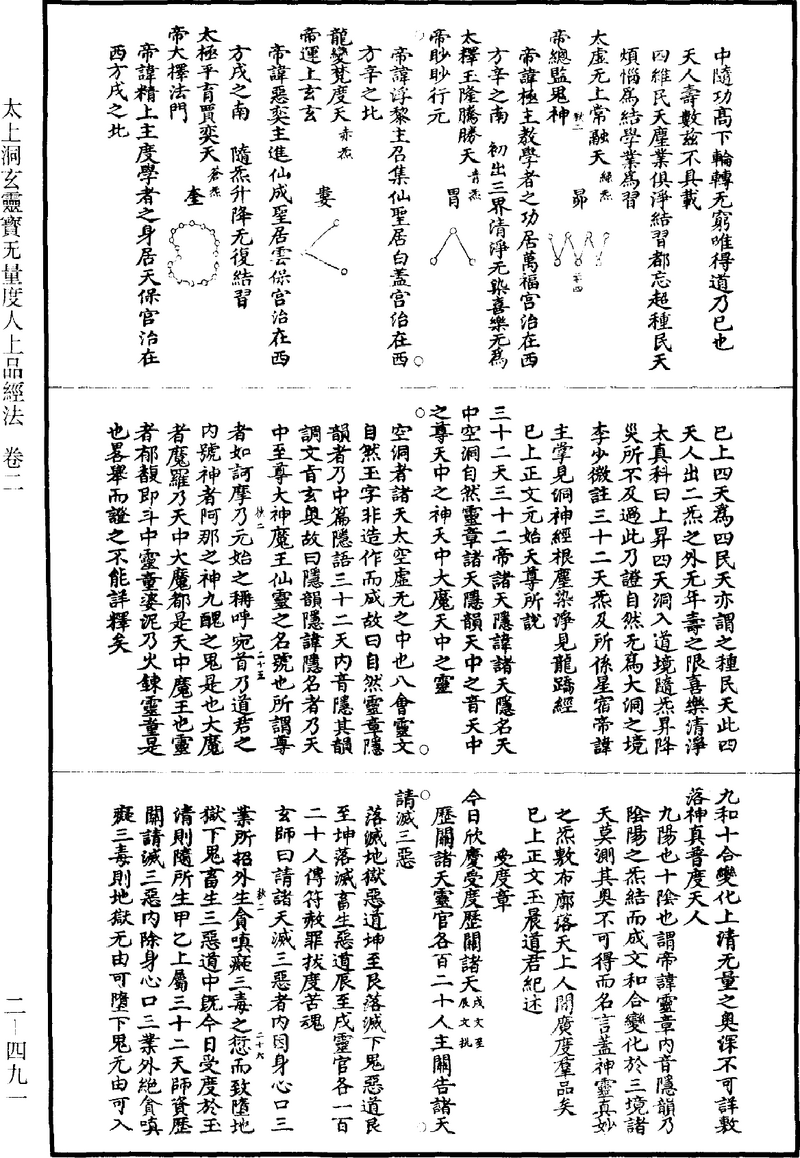 中隨功髙下輪轉无窮唯得道乃已也
天人壽數兹不具載
四維民天塵業俱淨結習都忘超種民天
煩惱爲結學業爲習
太虛无上常融天 綠炁 昴
帝總監鬼神
帝諱極主教學者之功居萬福宫治在西
方辛之南 初出三界清淨无染喜樂无爲
太釋玉隆騰勝天 青炁 胃
帝眇眇行元
帝諱浮黎主召集仙聖居白蓋宫治在西
方辛之北
龍變梵度天 赤炁 婁
帝運上玄玄
帝諱惡奕主進仙成聖居雲保宫治在西
方戌之南 隨炁升降无復結習
太極平育賈奕天 蒼炁 奎
帝大擇法門
帝諱精上主度學者之身居天保宫治在
西方戌之北
已上四天爲四民天亦謂之種民天此四
天人出二炁之外无年壽之限喜樂清淨
太真科曰上昇四天洞入道境隨炁昇降
災所不及過此乃證自然无爲大洞之境
李少微註三十二天炁及所係星宿帝諱
主掌見洞神經根塵染淨見龍蹻經
已上正文元始天尊所說
三十二天三十二帝諸天隱諱諸天隱名天
中空洞自然靈章諸天隱韻天中之音天中
之尊天中之神天中大魔天中之靈
空洞者諸天太空虛无之中也八會靈文
自然玉字非造作而成故曰自然靈章隱
韻者乃中篇隱語三十二天内音隱其韻
調文旨玄奥故曰隱韻隱諱隱名者乃天
中至尊大神魔王仙靈之名號也所謂尊
者如訶摩乃元始之稱呼宛首乃道君之
内號神者阿那之神九醜之鬼是也大魔
者魔羅乃天中大魔都是天中魔王也靈
者郁馥即斗中靈童婆泥乃火鍊靈童是
也畧舉而證之不能詳釋矣
九和十合變化上清无量之奥深不可詳敷
落神真普度天人
九陽也十陰也謂帝諱靈章内音隱韻乃
陰陽之炁結而成文和合變化於三境諸
天莫測其奥不可得而名言蓋神靈真妙
之炁敷布廓落天上人間廣度羣品矣
已上正文玉晨道君紀述
受度章
今日欣慶受度歷關諸天
歷關諸天靈官各百二十人主關告諸天
請滅三惡
落滅地獄惡道坤至艮落滅下鬼惡道艮
至坤落滅畜生惡道辰至戌靈官各一百
二十人傳符赦罪拔度苦魂
玄師曰請諸天滅三惡者内因身心口三
業所招外生貪嗔癡三毒之愆而致墮地
獄下鬼畜生三惡道中旣今日受度於玉
清則隨所生甲乙上屬三十二天師資歷
關請滅三惡内除身心口三業外絶貪嗔
癡三毒則地獄无由可墮下鬼无由可入
太上洞玄靈寶无量度人上品經法 卷二
二－四九一